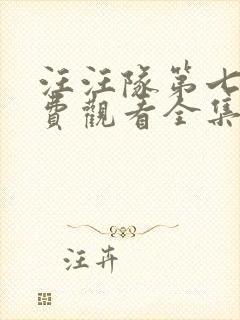 汪汪隊第七
費觀看全集
汪卉